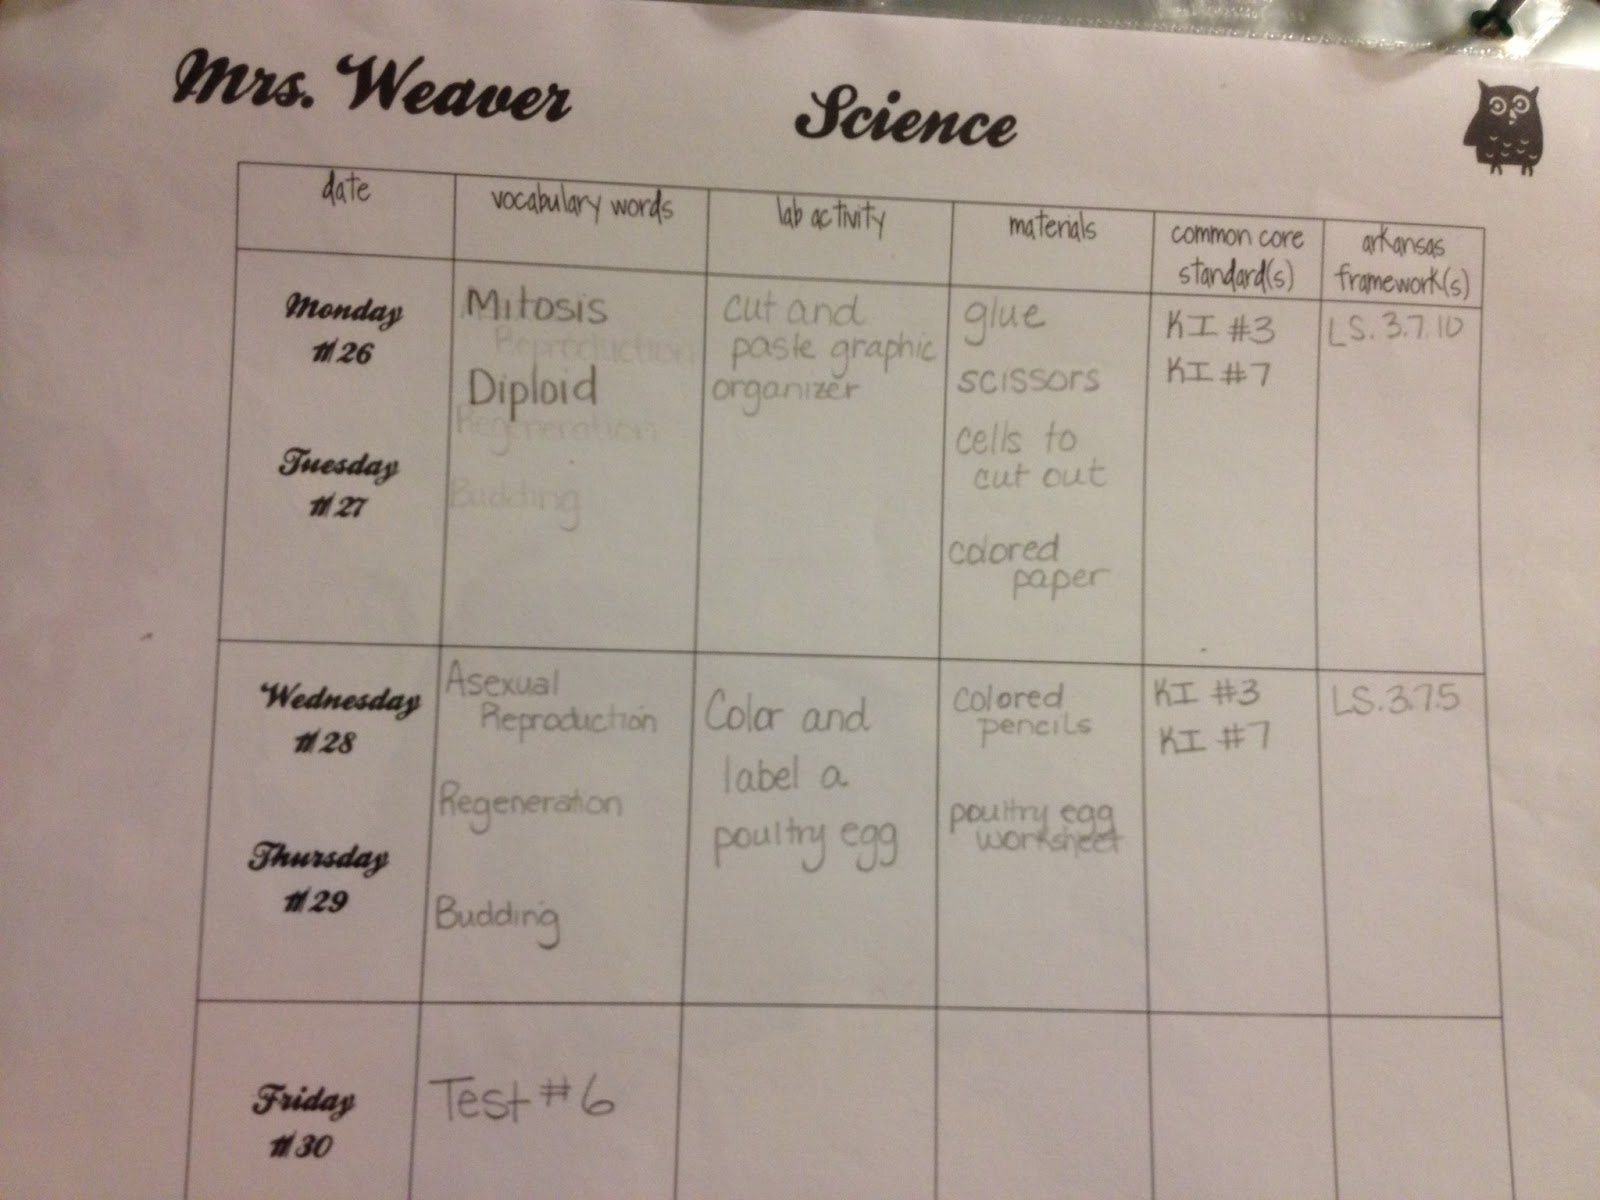 Mrs. Weaver
Science
date
vocabulary words
lab activity
materials
common core
standard(s)
arkansas
framework(s)
Monday
11/26
Tuesday
11/27
Mitosis
Reproduction
Diploid
Regeneration
Budding
cut and
paste graphic
organizer
glue
scissors
cells to
cut out
colored
paper
KI #3
KI #7
LS.3.7.10
Wednesday
11/28
Thursday
11/29
Asexual
Reproduction
Regeneration
Budding
Color and
label a
poultry egg
colored
pencils
poultry egg
worksheet
KI #3
KI #7
LS.3.7.5
Friday
11/30
Test #6